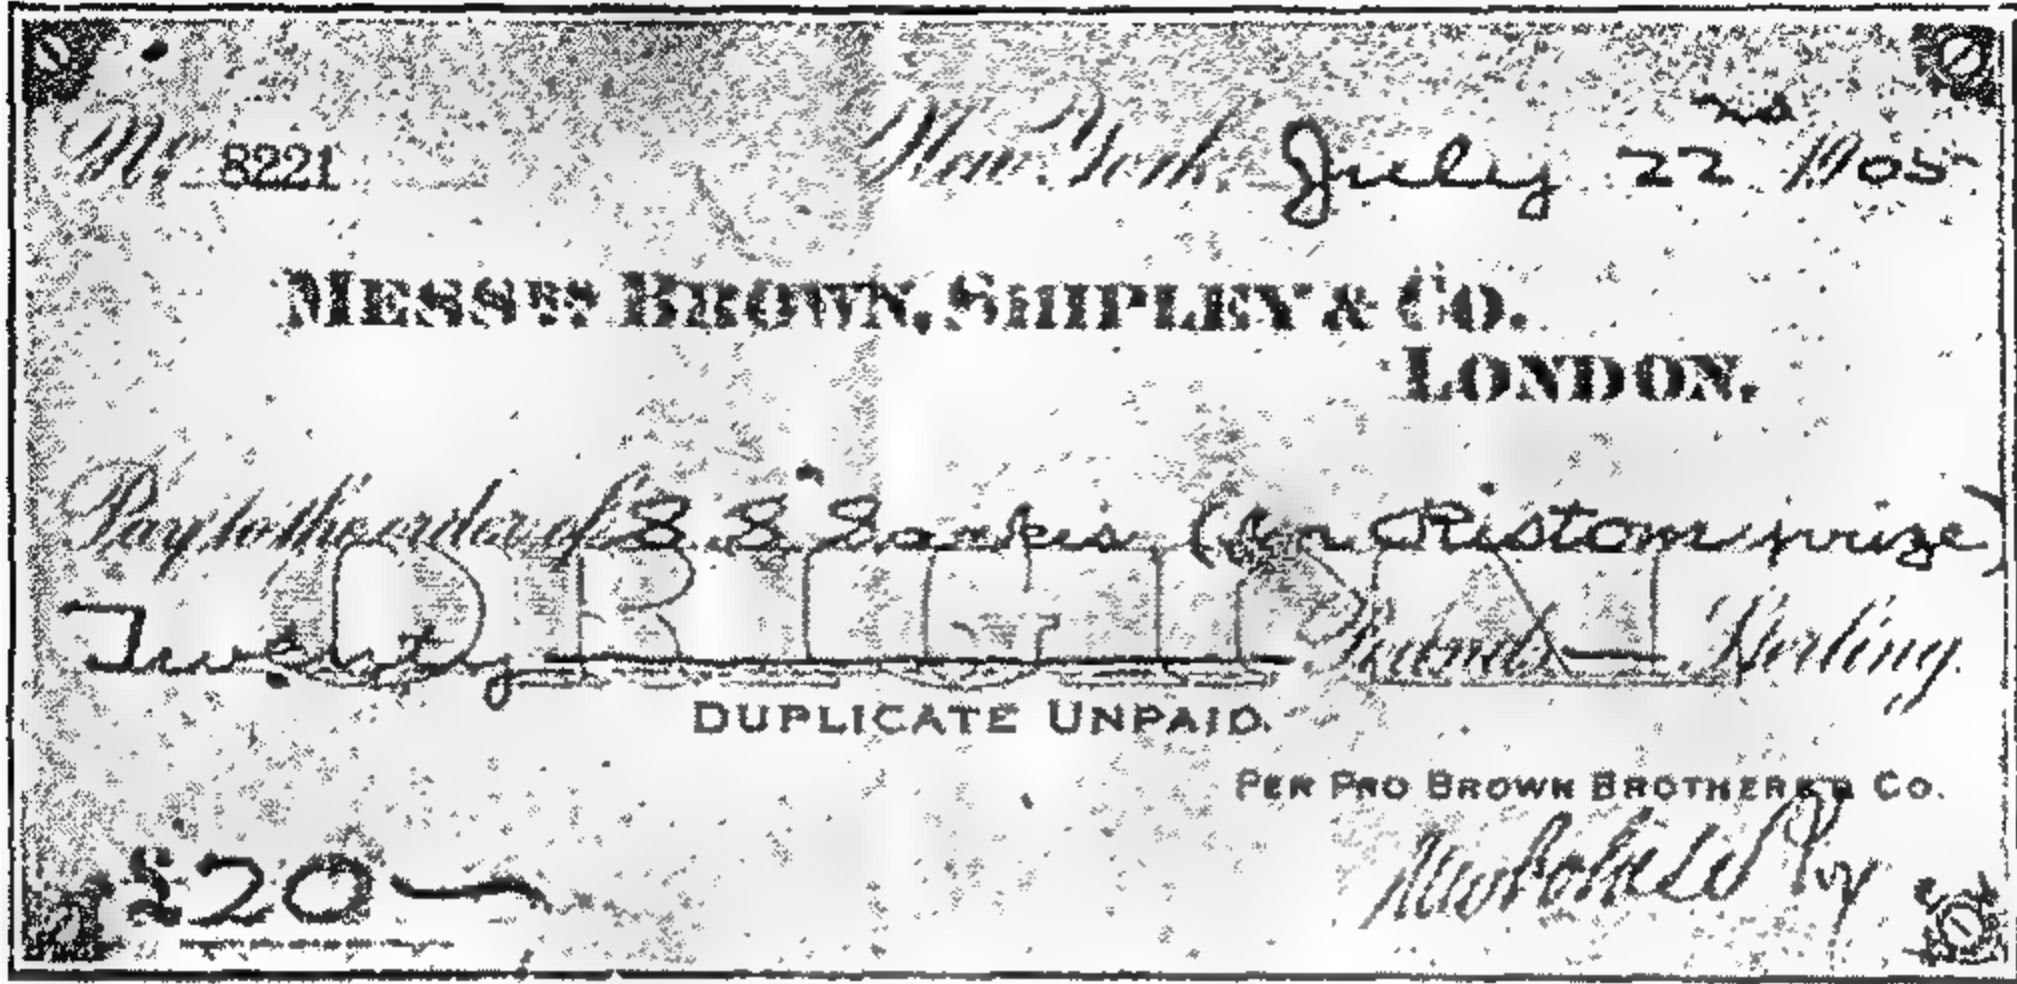 No 8221 New York July 22nd 1905
MESSRS BROWN, SHIPLEY & CO.
LONDON.
Pay to the order of
ORIGINAL
Twenty Pounds Sterling.
DUPLICATE UNPAID.
PER PRO BROWN BROTHERS & CO.
£20